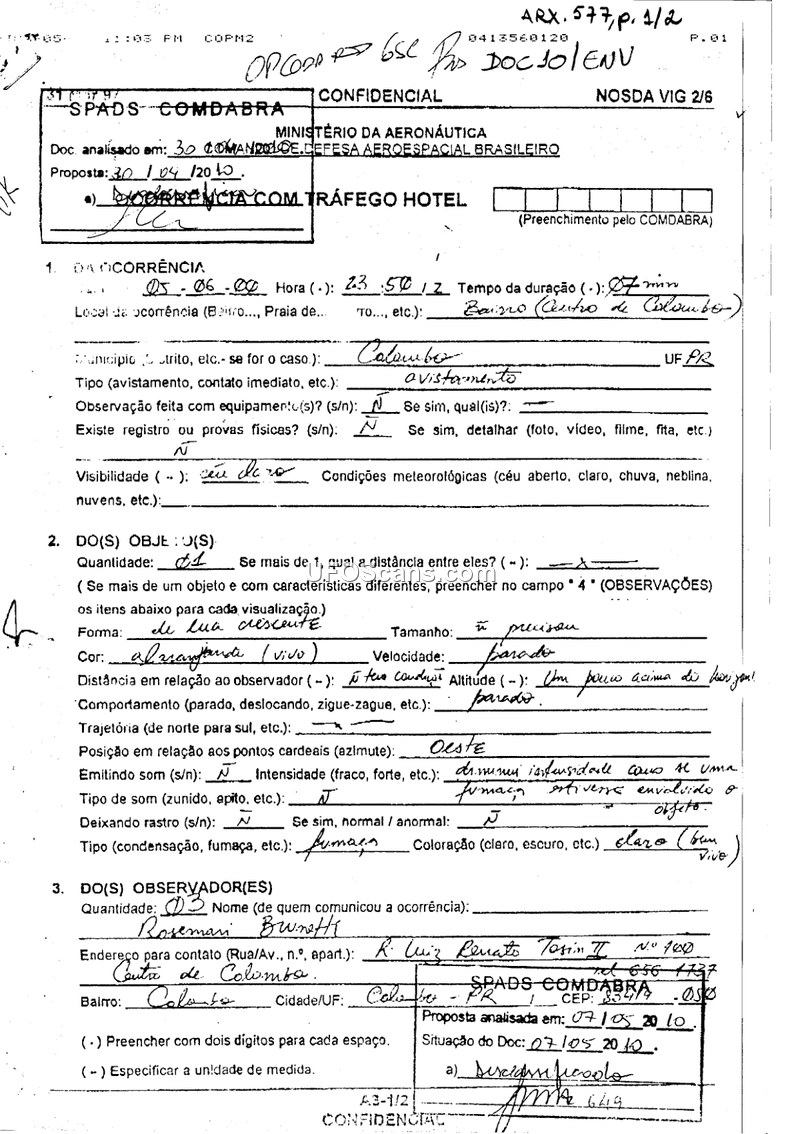 ARX. 577, p. 1/2
05 11:03 PM COPM2 0413560120 P.01
DOC 10/ENV
CONFIDENCIAL NOSDA VIG 2/6
SPADS COMDABRA
MINISTÉRIO DA AERONÁUTICA
COMANDO DE DEFESA AEROESPACIAL BRASILEIRO
Doc. analisado em: 30
Proposta: 30 / 04 /2010.
a)
OCORRÊNCIA COM TRÁFEGO HOTEL
(Preenchimento pelo COMDABRA)
1. DA OCORRÊNCIA
05 - 06 - 00 Hora (·): 23 :50 / Z Tempo da duração (·): 07 min
Local da ocorrência (Bairro..., Praia de... ro..., etc.): Bairro (Centro de Colombo)
Município trito, etc.- se for o caso ): Colombo UF PR
Tipo (avistamento, contato imediato, etc.): avistamento
Observação feita com equipamento(s)? (s/n): N Se sim, qual(is)?: —
Existe registro ou provas físicas? (s/n): N Se sim, detalhar (foto, vídeo, filme, fita, etc.)
N
Visibilidade ( ~ ): céu claro Condições meteorológicas (céu aberto, claro, chuva, neblina,
nuvens, etc.):
2. DO(S) OBJETO(S)
Quantidade: 01 Se mais de 1, qual a distância entre eles? ( ~ ): —x—
UFOScans.com
( Se mais de um objeto e com características diferentes, preencher no campo " 4 " (OBSERVAÇÕES)
os itens abaixo para cada visualização.)
Forma: de lua crescente Tamanho: ñ precisou
Cor: alaranjada (vivo) Velocidade: parado
Distância em relação ao observador ( ~ ): ñ teve condiçõ Altitude ( ~ ): Um pouco acima do horizont
Comportamento (parado, deslocando, zigue-zague, etc.): parado.
Trajetória (de norte para sul, etc.): —x—
Posição em relação aos pontos cardeais (azimute): OESTE
Emitindo som (s/n): N Intensidade (fraco, forte, etc.): diminui intensidade como se uma
fumaça estivesse envolvido o
objeto.
Tipo de som (zunido, apito, etc.): N
Deixando rastro (s/n): N Se sim, normal / anormal: N
Tipo (condensação, fumaça, etc.): fumaça Coloração (claro, escuro, etc.) claro (bem
vivo)
3. DO(S) OBSERVADOR(ES)
Quantidade: 03 Nome (de quem comunicou a ocorrência):
Rosemari Brunetti
Endereço para contato (Rua/Av., n.º, apart.): R. Luiz Renato Tosin II N.º 100
Centro de Colombo. tel 656 1737
Bairro: Colombo Cidade/UF: Colombo - PR / CEP:
SPADS COMDABRA
Proposta analisada em: 07 / 05 20 10.
( · ) Preencher com dois dígitos para cada espaço.
Situação do Doc: 07 / 05 20 10.
( ~ ) Especificar a unidade de medida.
a) Desclassificado
A3-1/2
CONFIDENCIAL